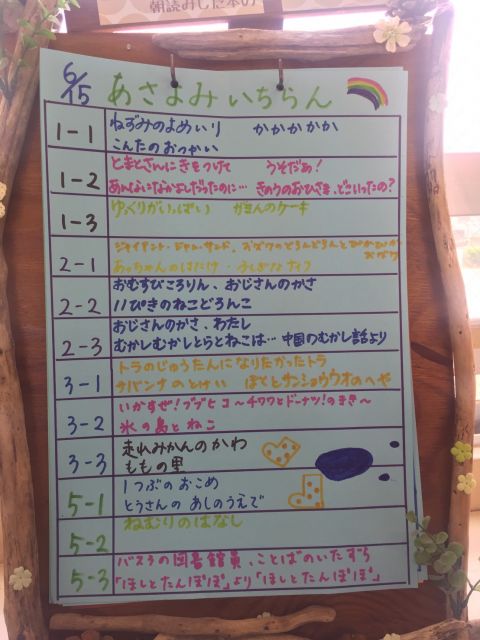 朝読みした本の
6/15 あさよみいちらん
1-1 ねずみのよめいり かかかかか
こんたのおつかい
1-2 とまとさんにきをつけて うそだぁ!
あんなになかよしだったのに… きのうのおひさま、どこいったの?
1-3 ゆっくりがいっぱい がまんのケーキ
2-1 ジャイアント・ジャム・サンド、おばけのどろんどろんとぴかぴかおばけ
あっちゃんのはたけ・ふしぎなナイフ
2-2 おむすびころりん、おじさんのかさ
11ぴきのねこどろんこ
2-3 おじさんのかさ、わたし
むかしむかしとらとねこは… 中国のむかし話より
3-1 トラのじゅうたんになりたかったトラ
サバンナのとけい ぼくとサンショウウオのへや
3-2 いかすぜ!ブブヒコ〜チワワとドーナツ!のまき〜
氷の島とねこ
3-3 走れみかんのかわ
ももの里
5-1 1つぶのおこめ
とうさんのあしのうえで
5-2 ねむりのはなし
5-3 バスラの図書館員、ことばのいたずら
「ほしとたんぽぽ」より「ほしとたんぽぽ」